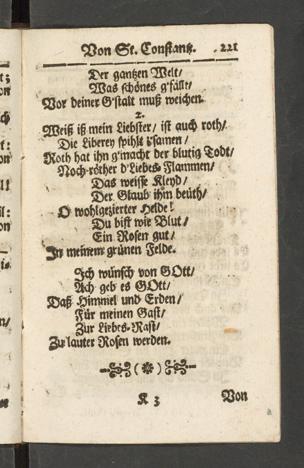 Von St. Constantz. 221
Der gantzen Welt/
Was schönes g'fällt/
Vor deiner G'stalt muß weichen.
2.
Weiß iß mein Liebster/ ist auch roth/
Die Liberey spihlt z'samen/
Roth hat ihn g'macht der blutig Todt/
Noch-röther d'Liebes-Flammen/
Das weisse Kleyd/
Der Glaub ihm beüth/
O wohlgezierter Helde!
Du bist wie Blut/
Ein Rosen gut/
In meinem grünen Felde.
Ich wünsch von GOtt/
Ach geb es GOtt/
Daß Himmel und Erden/
Für meinen Gast/
Zur Liebes-Rast/
Zu lauter Rosen werden.
K 3 Von